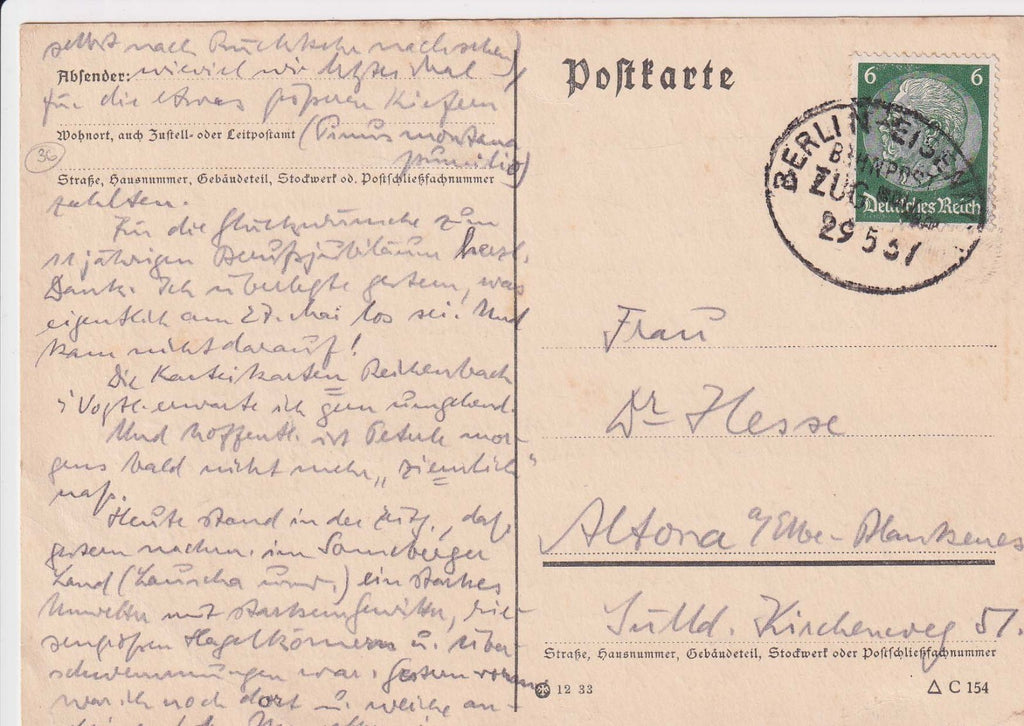 selbst nach Rückkehr nachsehen,
Absender: wieviel wir letztes Mal
für die etwas größeren Kiefern
Wohnort, auch Zustell- oder Leitpostamt (Pinus montana
36
pumilio)
Straße, Hausnummer, Gebäudeteil, Stockwerk od. Postschließfachnummer
zahlten.
Für die Glückwünsche zum
11 jährigen Berufsjubiläum herzl.
Dank. Ich überlegte gestern, was
eigentlich am 27. Mai los sei. Und
kam nicht darauf!
Die Karteikarten Reichenbach
i/Vogtl. erwarte ich gern umgehend.
Und hoffentl. ist Peterle mor-
gens bald nicht mehr „ziemlich“
naß.
Heute stand in der Ztg., daß
gestern nachm. im Sonneberger
Land (Lauscha usw.) ein starkes
Unwetter mit starkem Gewitter, rie-
sengroßen Hagelkörnern u. Über-
schwemmungen war. Gestern
war ich noch dort u.
Postkarte
6 6
Deutsches Reich
BERLIN-EISEN
BAHNPOST
ZUG
29 5 37
Frau
Dr Hesse
Altona a/Elbe-Blankenes
Sülld. Kirchenweg 51.
Straße, Hausnummer, Gebäudeteil, Stockwerk oder Postschließfachnummer
12 33
C 154